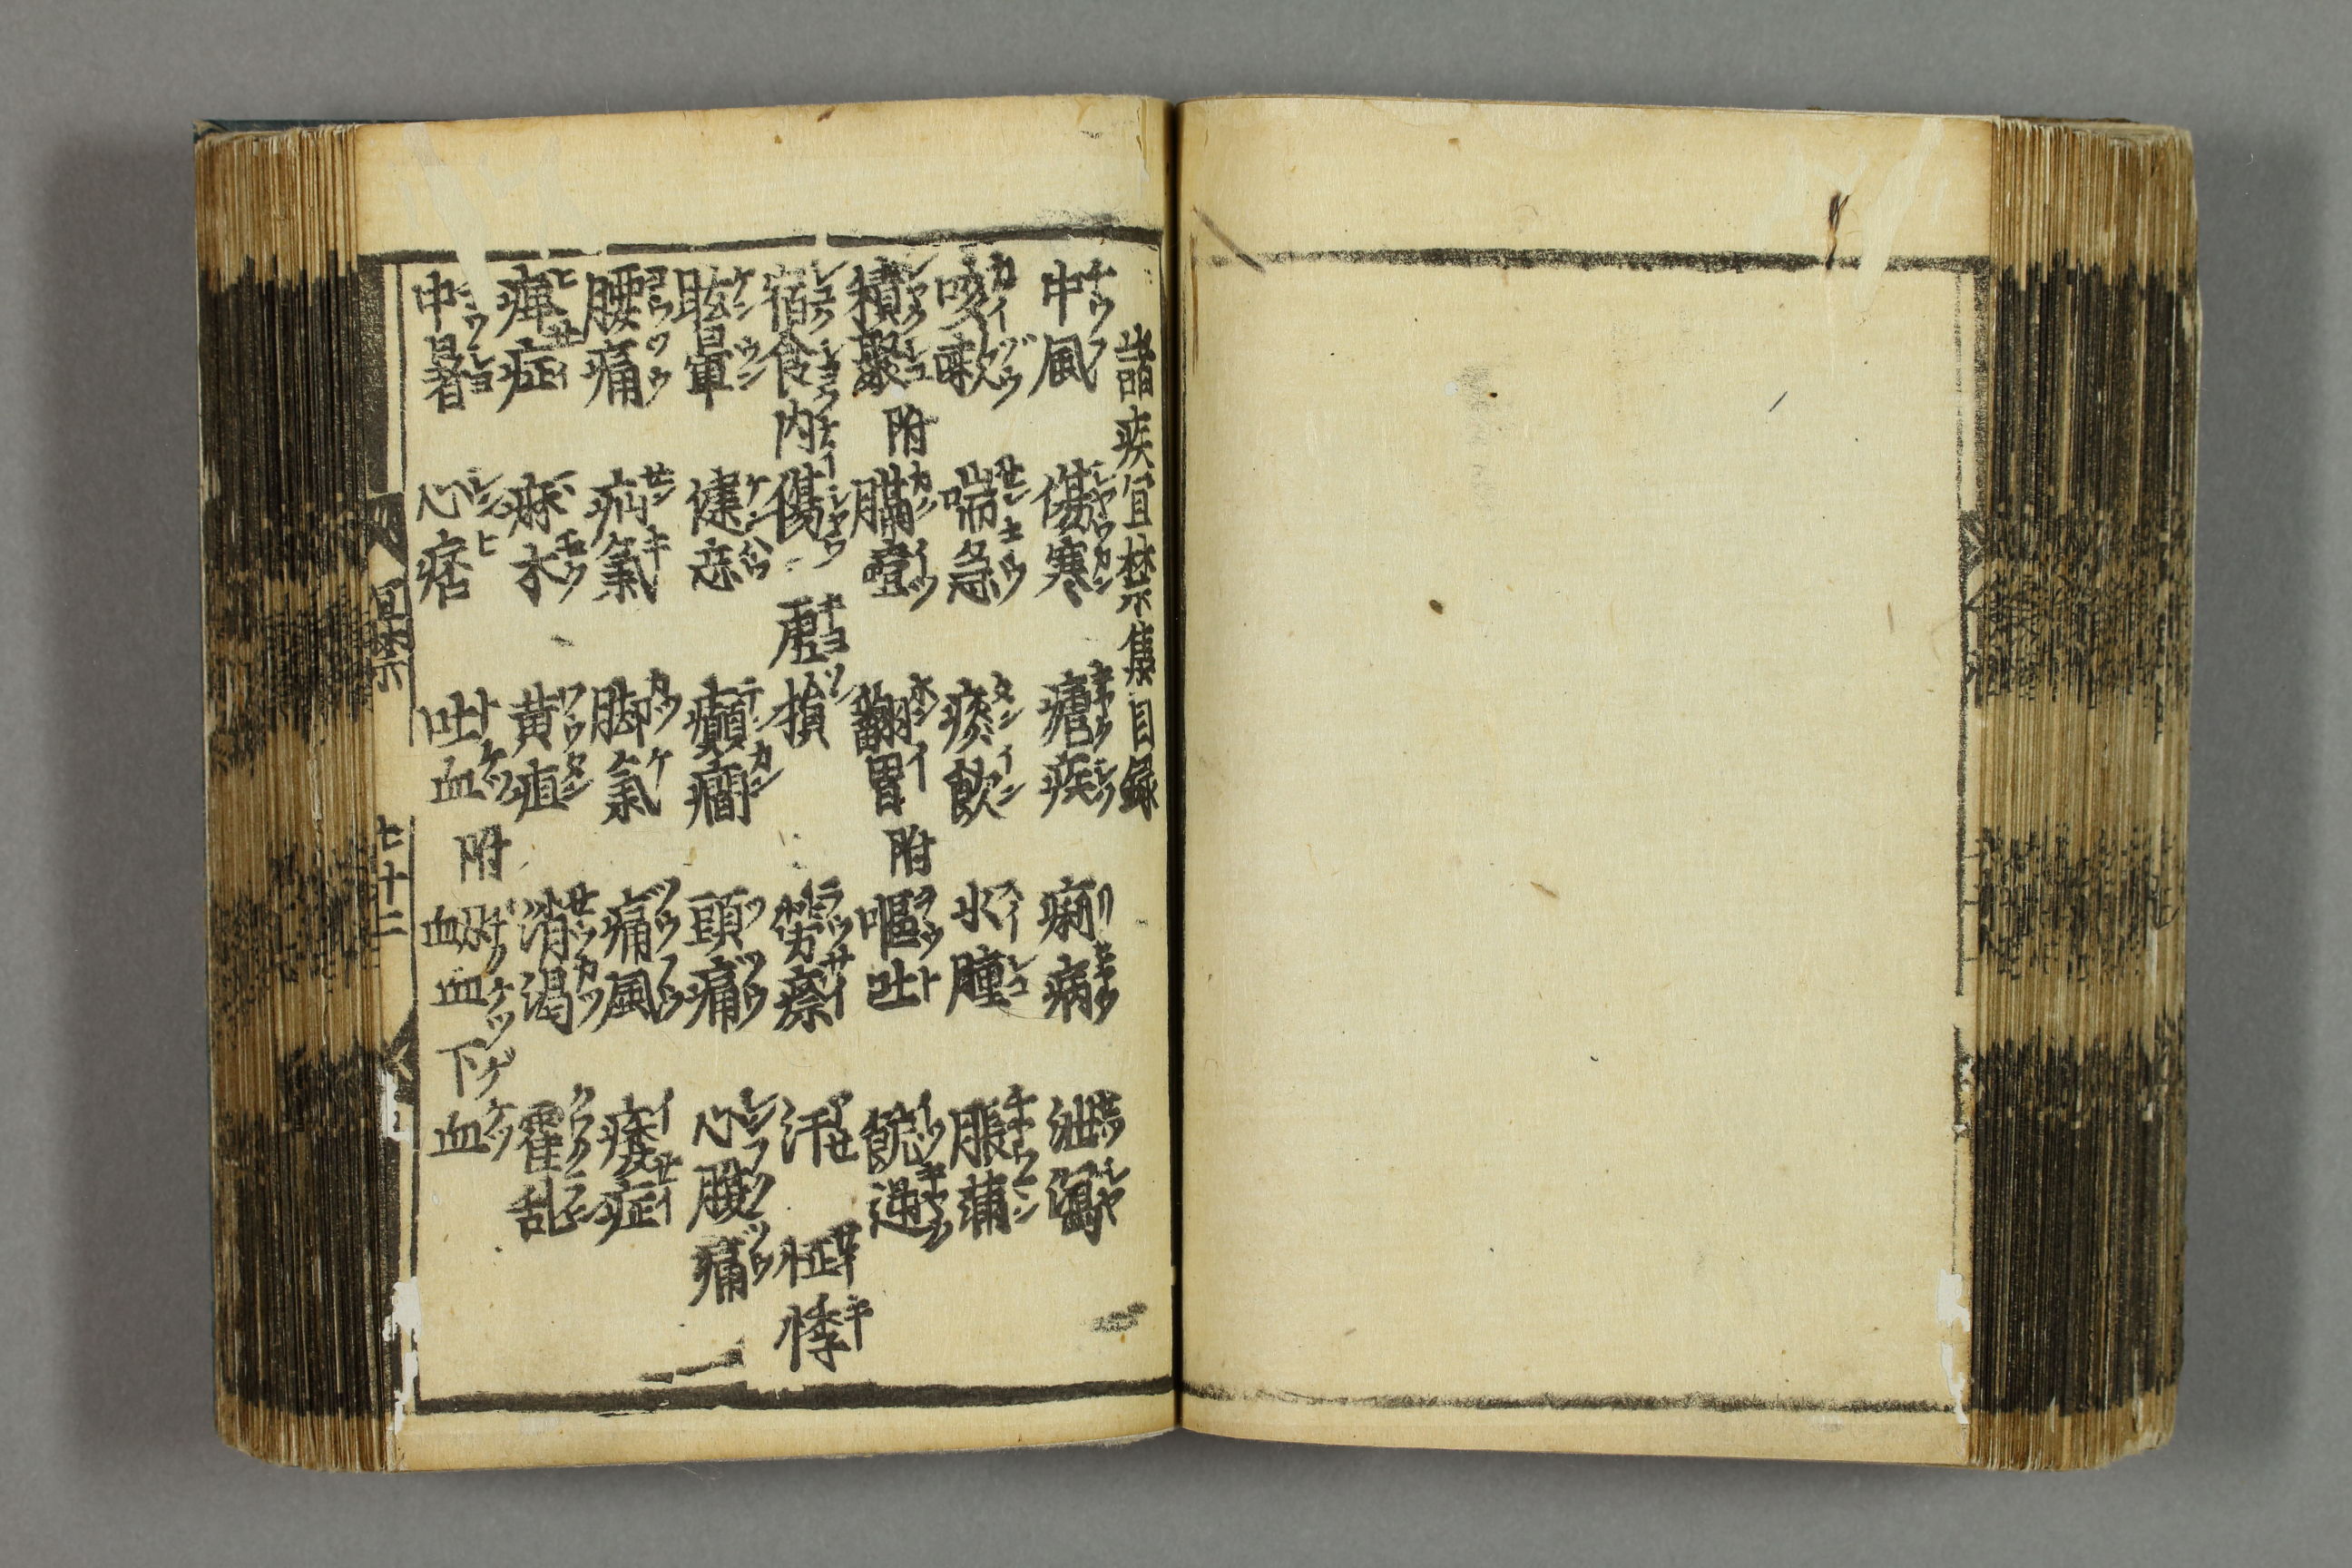 諸疾宜禁集目録
中風 傷寒 瘧疾 痢病 泄瀉
咳嗽 喘急 痰飲 水腫 脹満
積聚 附 膈噎 翻胃 附 嘔吐 飽逆
宿食 内傷 虚損 労瘵 汗 怔悸
眩暈 健忘 癲癇 頭痛 心腹痛
腰痛 疝氣 脚氣 痛風 痿症
痺症 麻木 黄疸 消渇 霍乱
中暑 心痞 吐血 附 衂血 下血
宜禁 七十二